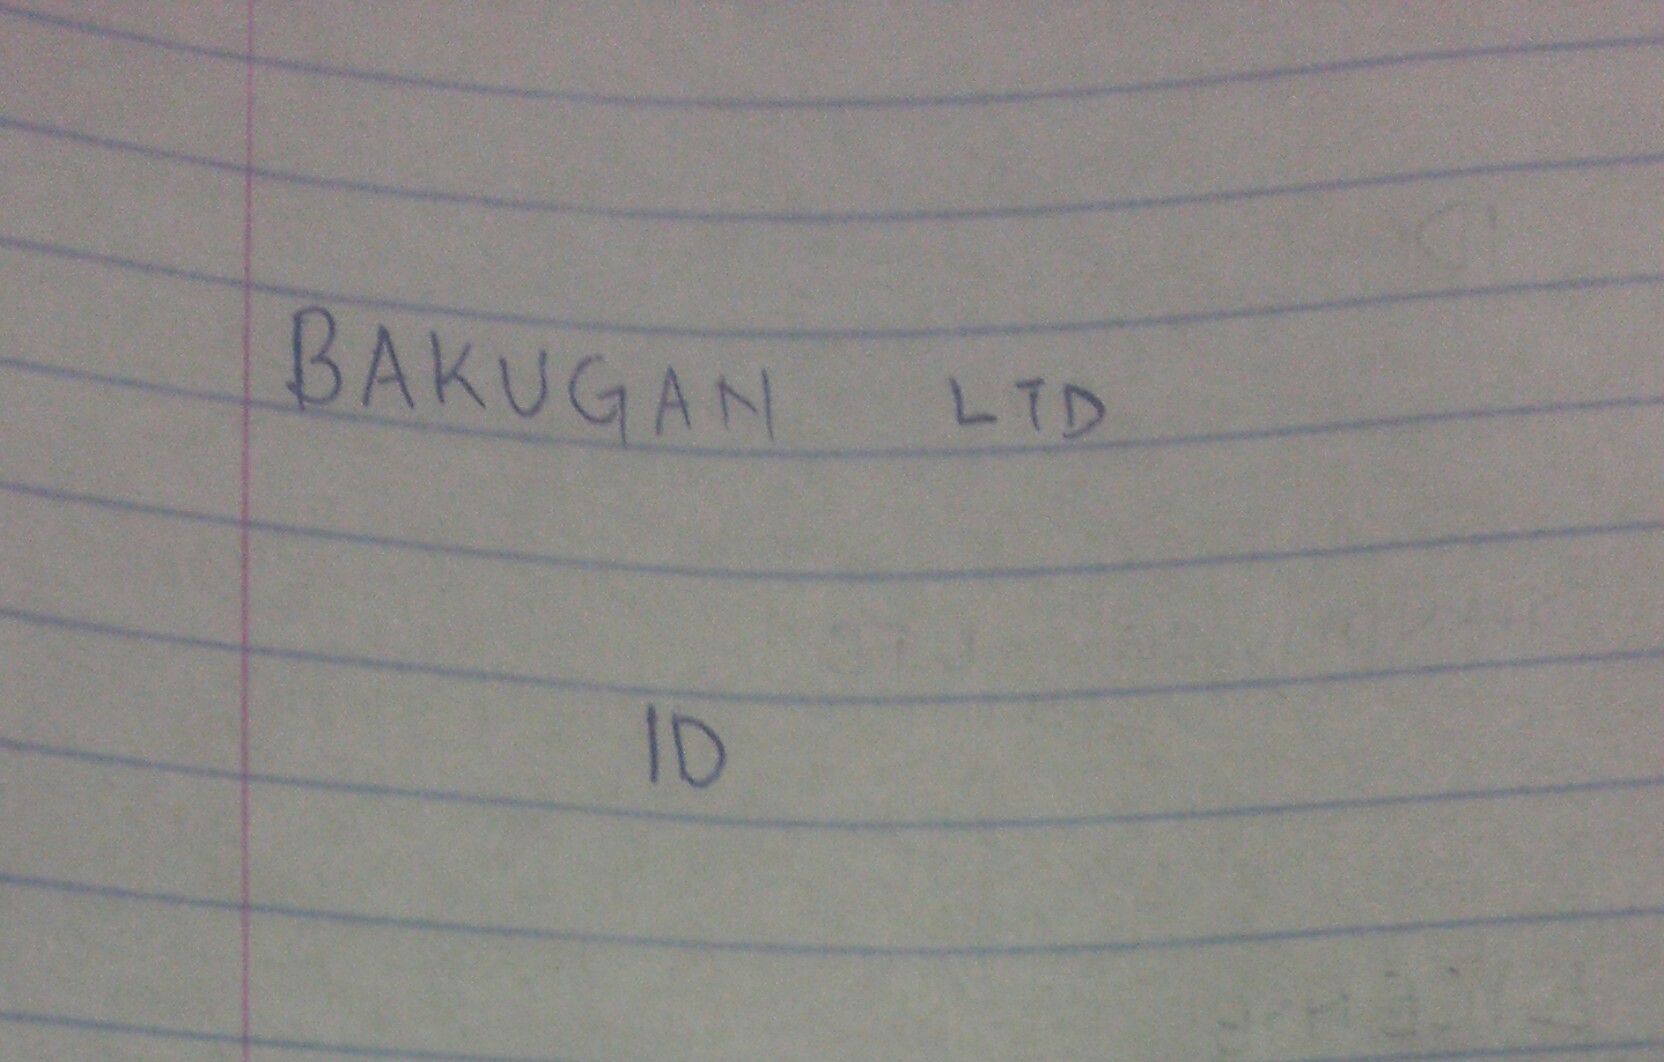 BAKUGAN LTD
ID